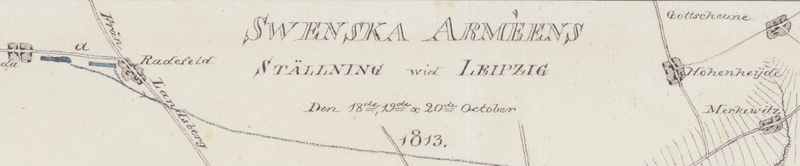 SWENSKA ARMÉENS
STÄLLNING wid LEIPZIG
Den 18de, 19de & 20de October
1813.
Från
Landsberg
da
a
Radefeld
Gottscheune
Hohenheÿde
Merkewitz